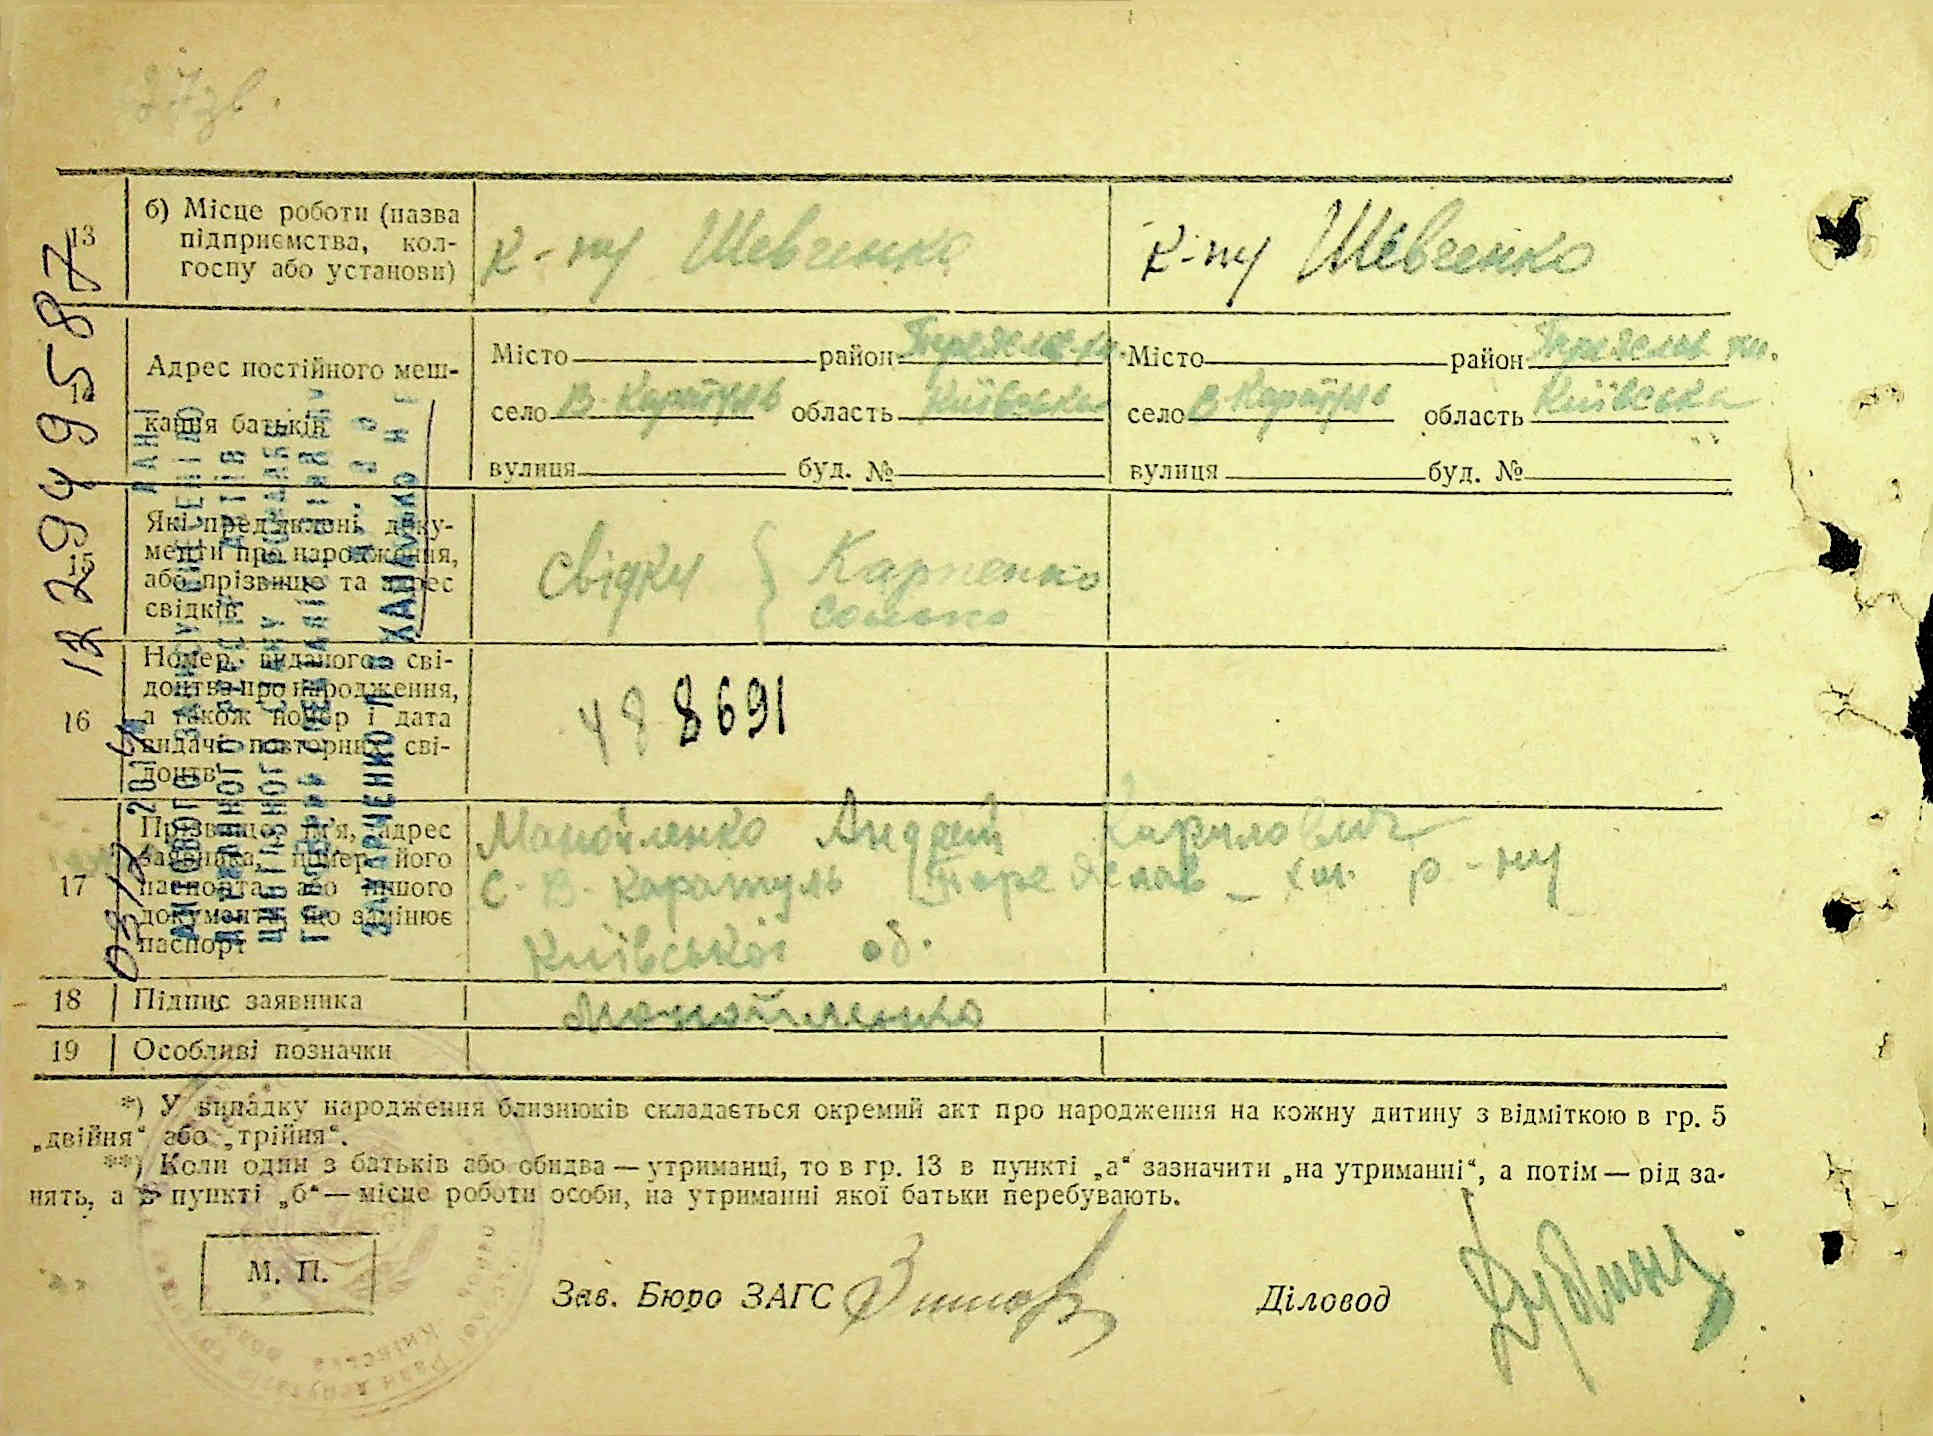 27зв.
13
б) Місце роботи (назва
підприємства, кол-
госпу або установи)
к-пу Шевченко
к-пу Шевченко
14
Адрес постійного меш-
кання батьків
Місто район Переяслав
село В-Каратуль область Київська
вулиця буд. №
Місто район Переяслав
село В-Каратуль область Київська
вулиця буд. №
15
Які пред'явлені доку-
менти про народження,
або прізвище та адрес
свідків
свідки { Карпенко
16
Номер виданого сві-
доцтва про народження,
а також номер і дата
видачі повторних сві-
доцтв
488691
17
Прізвище, ім'я, адрес
заявника, номер його
паспорта або іншого
документа, що замінює
паспорт
Манойленко Андрей Кирилович
с-В-Каратуль Переяслав-хм. р-ну
Київської об.
18 Підпис заявника
Манойленко
19 Особливі позначки
*) У випадку народження близнюків складається окремий акт про народження на кожну дитину з відміткою в гр. 5
„двійня“ або „трійня“.
**) Коли один з батьків або обидва — утриманці, то в гр. 13 в пункті „а“ зазначити „на утриманні“, а потім — рід за-
нять, а в пункті „б“ — місце роботи особи, на утриманні якої батьки перебувають.
М. П.
Зав. Бюро ЗАГС
Діловод
12 29495877